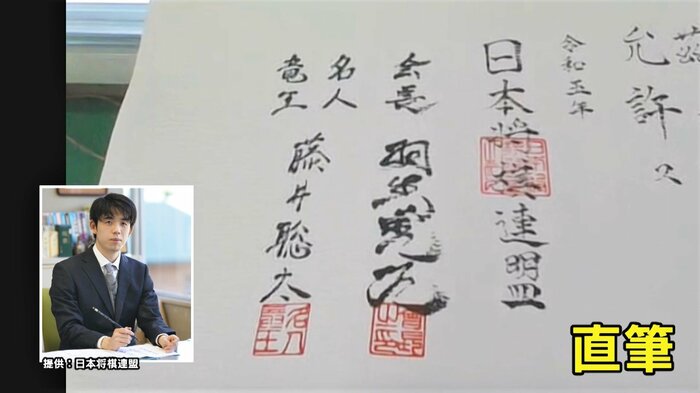 允許ス
令和五年
日本将棋連盟
会長 羽生善治
名人
竜王 藤井聡太
直筆
提供：日本将棋連盟